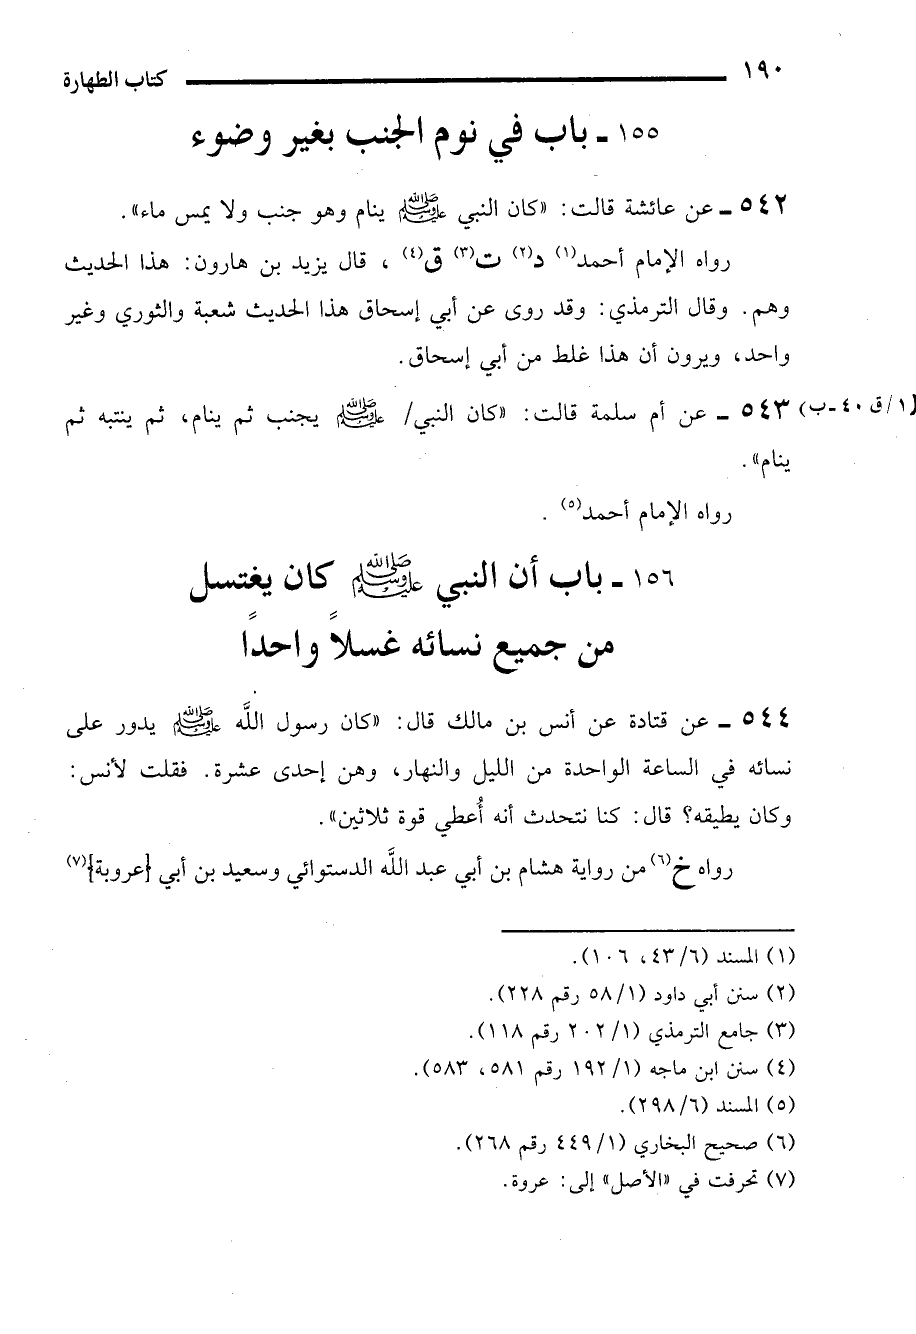 ١٩٠ كتاب الطهارة
١٥٥ ـ باب في نوم الجنب بغير وضوء
٥٤٢ ـ عن عائشة قالت: «كان النبي ﷺ ينام وهو جنب ولا يمس ماء».
رواه الإمام أحمد(١) د(٢) ت(٣) ق(٤) ، قال يزيد بن هارون: هذا الحديث
وهم. وقال الترمذي: وقد روى عن أبي إسحاق هذا الحديث شعبة والثوري وغير
واحد، ويرون أن هذا غلط من أبي إسحاق.
(١/ق ٤٠-ب) ٥٤٣ ـ عن أم سلمة قالت: «كان النبي/ ﷺ يجنب ثم ينام، ثم ينتبه ثم
ينام».
رواه الإمام أحمد(٥) .
١٥٦ ـ باب أن النبي ﷺ كان يغتسل
من جميع نسائه غسلاً واحدًا
٥٤٤ ـ عن قتادة عن أنس بن مالك قال: «كان رسول اللَّه ﷺ يدور على
نسائه في الساعة الواحدة من الليل والنهار، وهن إحدى عشرة. فقلت لأنس:
وكان يطيقه؟ قال: كنا نتحدث أنه أُعطي قوة ثلاثين».
رواه خ(٦) من رواية هشام بن أبي عبد اللَّه الدستوائي وسعيد بن أبي {عروبة}(٧)
(١) المسند (٤٣/٦، ١٠٦).
(٢) سنن أبي داود (٥٨/١ رقم ٢٢٨).
(٣) جامع الترمذي (٢٠٢/١ رقم ١١٨).
(٤) سنن ابن ماجه (١٩٢/١ رقم ٥٨١، ٥٨٣).
(٥) المسند (٢٩٨/٦).
(٦) صحيح البخاري (٤٤٩/١ رقم ٢٦٨).
(٧) تحرفت في «الأصل» إلى: عروة.